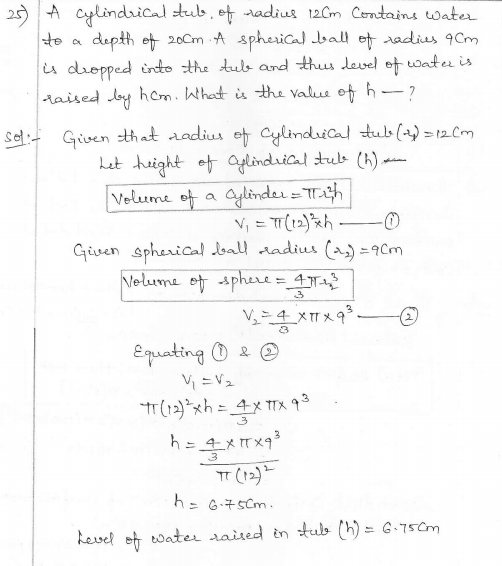 25) A Cylindrical tub, of radius 12Cm Contains water
to a depth of 20Cm. A spherical ball of radius 9Cm
is dropped into the tub and thus level of water is
raised by hCm. What is the value of h — ?
Sol:- Given that radius of Cylindrical tub (r₁) = 12Cm
Let height of Cylindrical tub (h) —
Volume of a Cylinder = πr₁²h
V₁ = π(12)²×h — ①
Given spherical ball radius (r₂) = 9Cm
Volume of sphere = 4/3 πr₂³
V₂ = 4/3 × π × 9³ — ②
Equating ① & ②
V₁ = V₂
π(12)²×h = 4/3 × π × 9³
h = 4/3 × π × 9³ / π(12)²
h = 6.75Cm.
Level of water raised in tub (h) = 6.75Cm